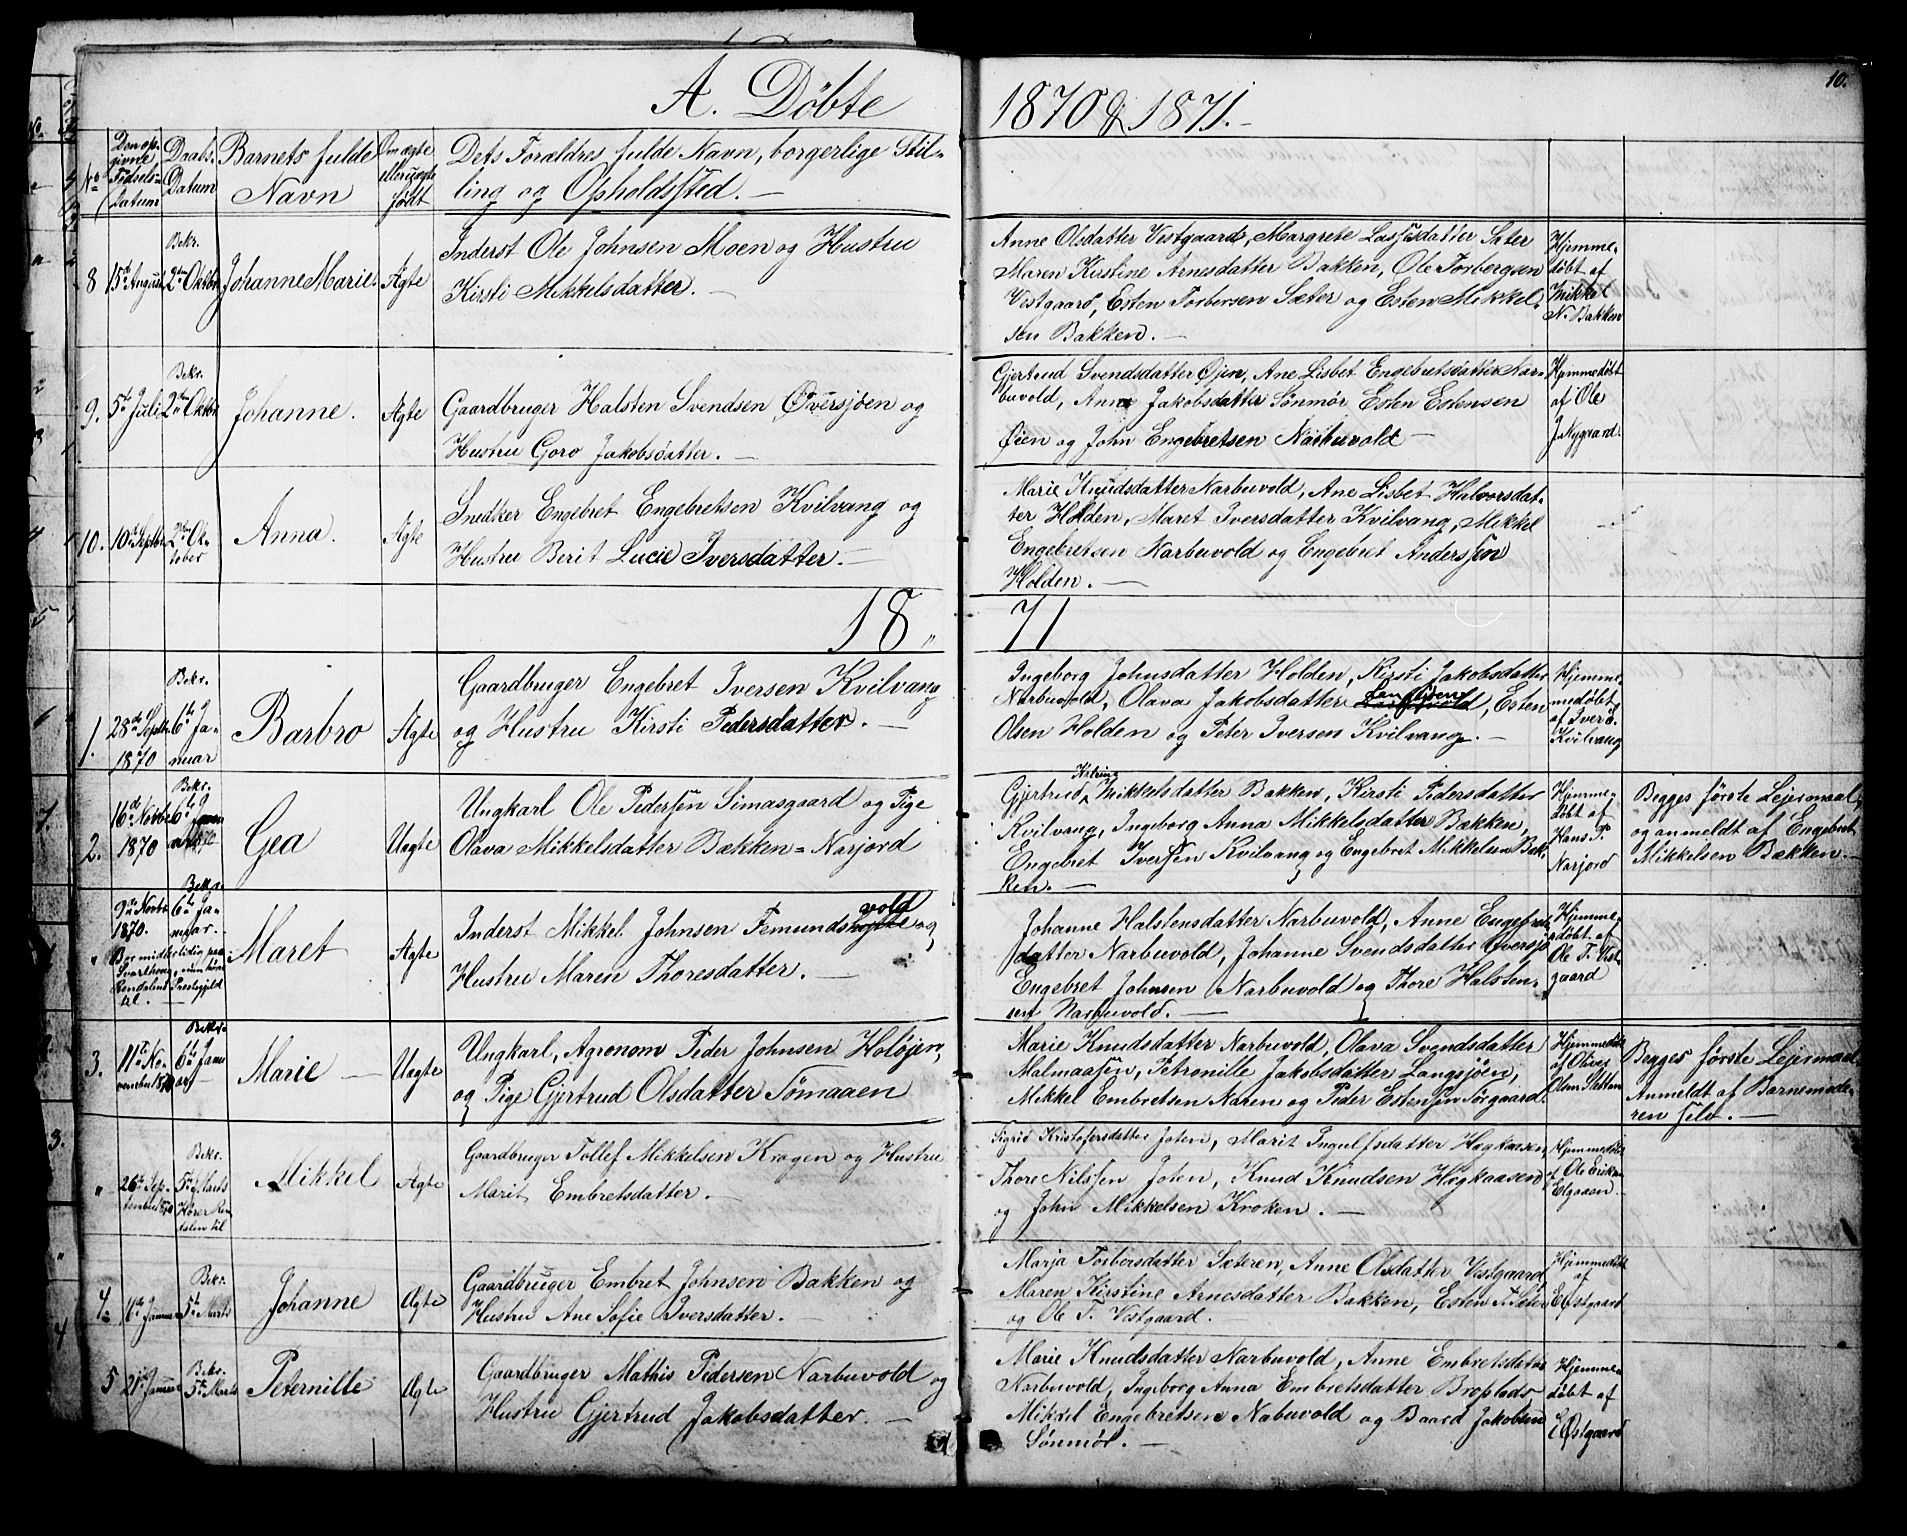 A. Döbte
1870 & 1871.
10.
No
Den op-
givne
Födsels-
datum
Daabs-
Datum
Barnets fulde
Navn
Om ægte
födt
Dets Forældres fulde Navn, borgerlige Stil-
ling og Opholdssted.
8
15de August
Bekr.
2den Oktbr
Johanne Marie.
Ægte
Inderst Ole Johnsen Moen og Hustru
Kirsti Mikkelsdatter.
Anne Olsdatter Vestgaard, Margrete Lassesdatter Sæter
Maren Kirstine Arnesdatter Bakken, Ole Torbergsen
Vestgaard, Esten Torbersen Sæter og Esten Mikkel-
sen Bakken.
Hjemme-
döbt af
Mikkel
N. Bakken
9.
5te Juli
Bekr.
2den Oktbr
Johanne.
Ægte
Gaardbruger Halsten Svendsen Översjöen og
Hustru Goro Jakobsdatter.
Gjertrud Svendsdatter Øjen, Ane Lisbet Engebretsdatter Nar-
buvold, Anne Jakobsdatter Sönmör Esten Estensen
Öien og John Engebretsen Narbuvold
Hjemmedöbt
af Ole
J. Nygaard.
10.
10de Septbr
2den Ok-
tober
Anna.
Ægte
Snedker Engebret Engebretsen Kvilvang og
Hustru Berit Lucie Iversdatter.
Marie Knudsdatter Narbuvold, Ane Lisbet Halvorsdat-
ter Holden, Maret Iversdatter Kvilvang, Mikkel
Engebretsen Narbuvold og Engebret Anderssen
Holden.
18 71
1.
28de Septbr
1870
Bekr.
6te Ja-
nuar
Barbro
Ægte
Gaardbruger Engebret Iversen Kvilvang
og Hustru Kirsti Pedersdatter.
Ingeborg Johnsdatter Holden, Kirsti Jakobsdatter
Narbuvold, Olava Jakobsdatter Langsjöen, Esten
Olsen Holden og Peter Iversen Kvilvang.
Hjemme-
medöbt
af Iver
Kvilvang
2.
16de Novbr
1870
Bekr.
6te
Gea
Uægte
Ungkarl Ole Pedersen Simasgaard og Pige
Olava Mikkelsdatter Bækken - Narjord
Gjertrud Mikkelsdatter Bakken, Kirsti Pedersdatter
Kvilvang, Ingeborg Anna Mikkelsdatter Bækken,
Engebret Iversen Kvilvang og Engebret Mikkelsen Bæk-
ken.
Hjemme-
döbt af
Hans P.
Narjord
Begges förste Lejermaal,
og anmeldt af Engebret
Mikkelsen Bækken.
"
Novbr
1870.
Bekr.
6te Ja-
nuar.
Maret
Ægte
Inderst Mikkel Johnsen Femundsvold og
Hustru Maren Thoresdatter.
Johanne Halstensdatter Narbuvold, Anne Engebrets-
datter Narbuvold, Johanne Svendsdatter Översjö
Engebret Johnsen Narbuvold og Thore Halsten-
sen Narbuvold.
Hjemme-
döbt af
Ole T. Vest-
gaard
3.
11te No-
vember 1870
Bekr.
6te Janu
ar
Marie
Uægte
Ungkarl, Agronom Peder Johnsen Holöjen,
og Pige Gjertrud Olsdatter Tömaaen
Marie Knudsdatter Narbuvold, Olava Svendsdatter
Malmaasen, Petronille Jakobsdatter Langsjöen,
Mikkel Embretsen Naren og Peder Estensen Torgaard.
Hjemmedöbt
af Oliver
Olsen Sletten
Begges förste Lejermaal
Anmeldt af Barnemode-
ren selv.
"
26de Sep-
tember 1870
Bekr.
5te Marts
Hörer Ren-
dalen til
Mikkel
Ægte
Gaardbruger Tollef Mikkelsen Krogen og Hustru
Marit Embretsdatter.
Sigrid Kristofersdatter Joten, Marit Ingulfsdatter Haakaasen,
Thore Nilssen Joten, Knud Knudsen Haakaasen
og John Mikkelsen Kroken.
Hjemmedöbt
af Ole Eriksen
Elgaaen.
4.
11te Januar
Bekr.
5te Marts
Johanne
Ægte
Gaardbruger Embret Johnsen Bakken og
Hustru Ane Sofie Iversdatter.
Marja Torbersdatter Sæteren, Anne Olsdatter Vestgaard,
Maren Kirstine Arnesdatter Bakken, Esten T. Sæter
og Ole T. Vestgaard.
Hjemmedöbt
af
E. Östgaard
5
21de Januar
Bekr.
5te Marts
Peternille
Ægte
Gaardbruger Mathis Pedersen Narbuvold og
Hustru Gjertrud Jakobsdatter.
Marie Knudsdatter Narbuvold, Anne Embretsdatter
Narbuvold, Ingeborg Anna Embretsdatter Broplads
Mikkel Engebretsen Nabuvold og Baard Jakobsen
Sönmör.
Hjemme-
döbt af
E. Östgaard